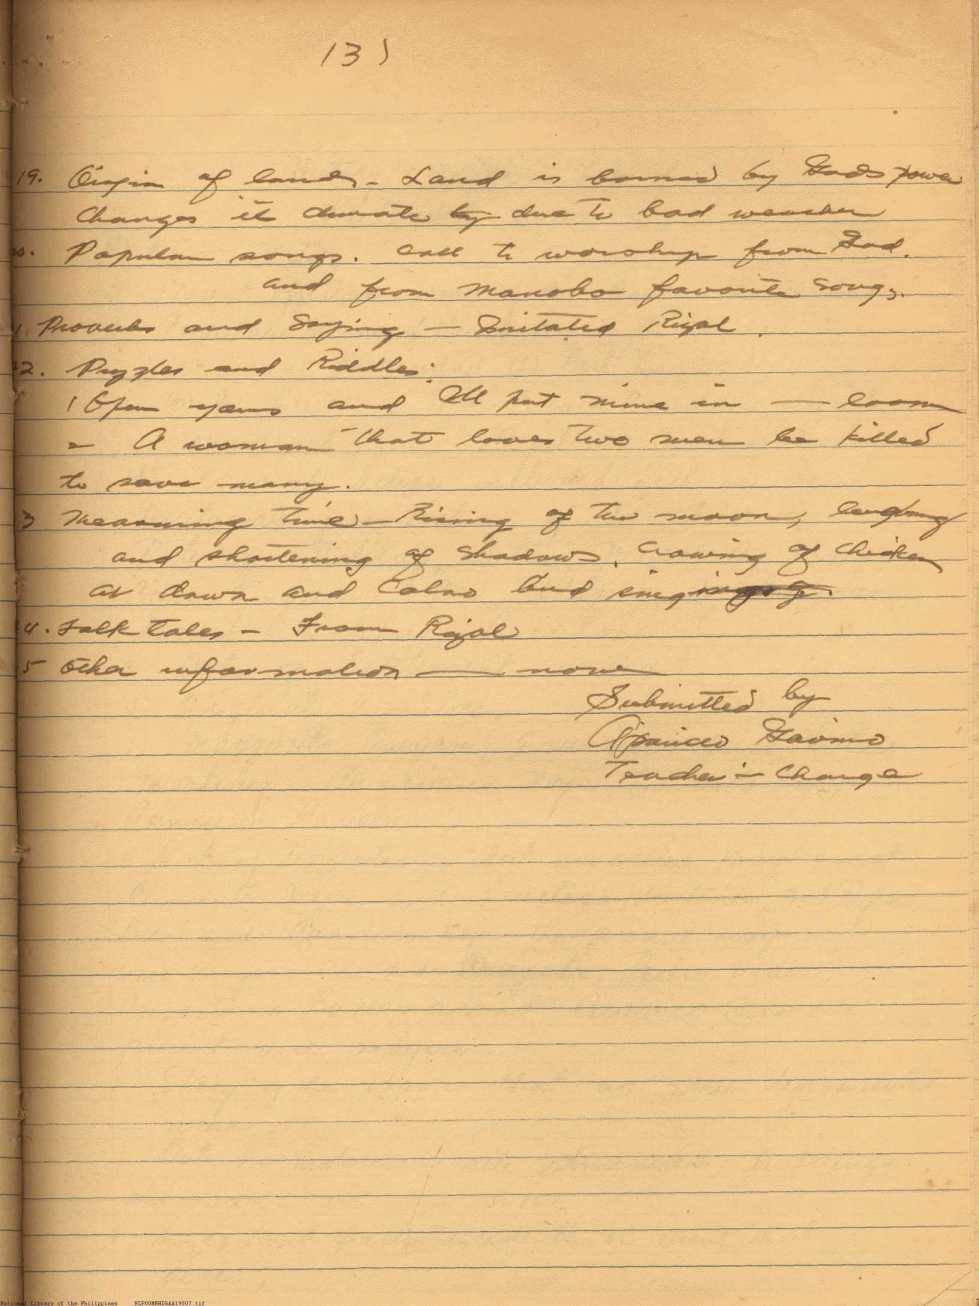 13)
19. Origin of lands - Land is borned by Gods power
Changes it climate by due to bad weather
0. Popular songs. call to worship from God.
and from Manobo favorite songs.
1. Proverbs and Saying - Imitated Rizal.
2. Puzzles and Riddles.
1 Open yours and Ill put mine in — loom
2 A woman that loves two men be killed
to save many.
3 Measuring time - Rising of the moon, lengthening
and shortening of shadows. Crowing of chicken
at dawn and Calao bird singing
4. Folk tales - From Rizal
5 Other information — none
Submitted by
Aparicio Gavino
Teacher-in-Charge
National Library of the Philippines